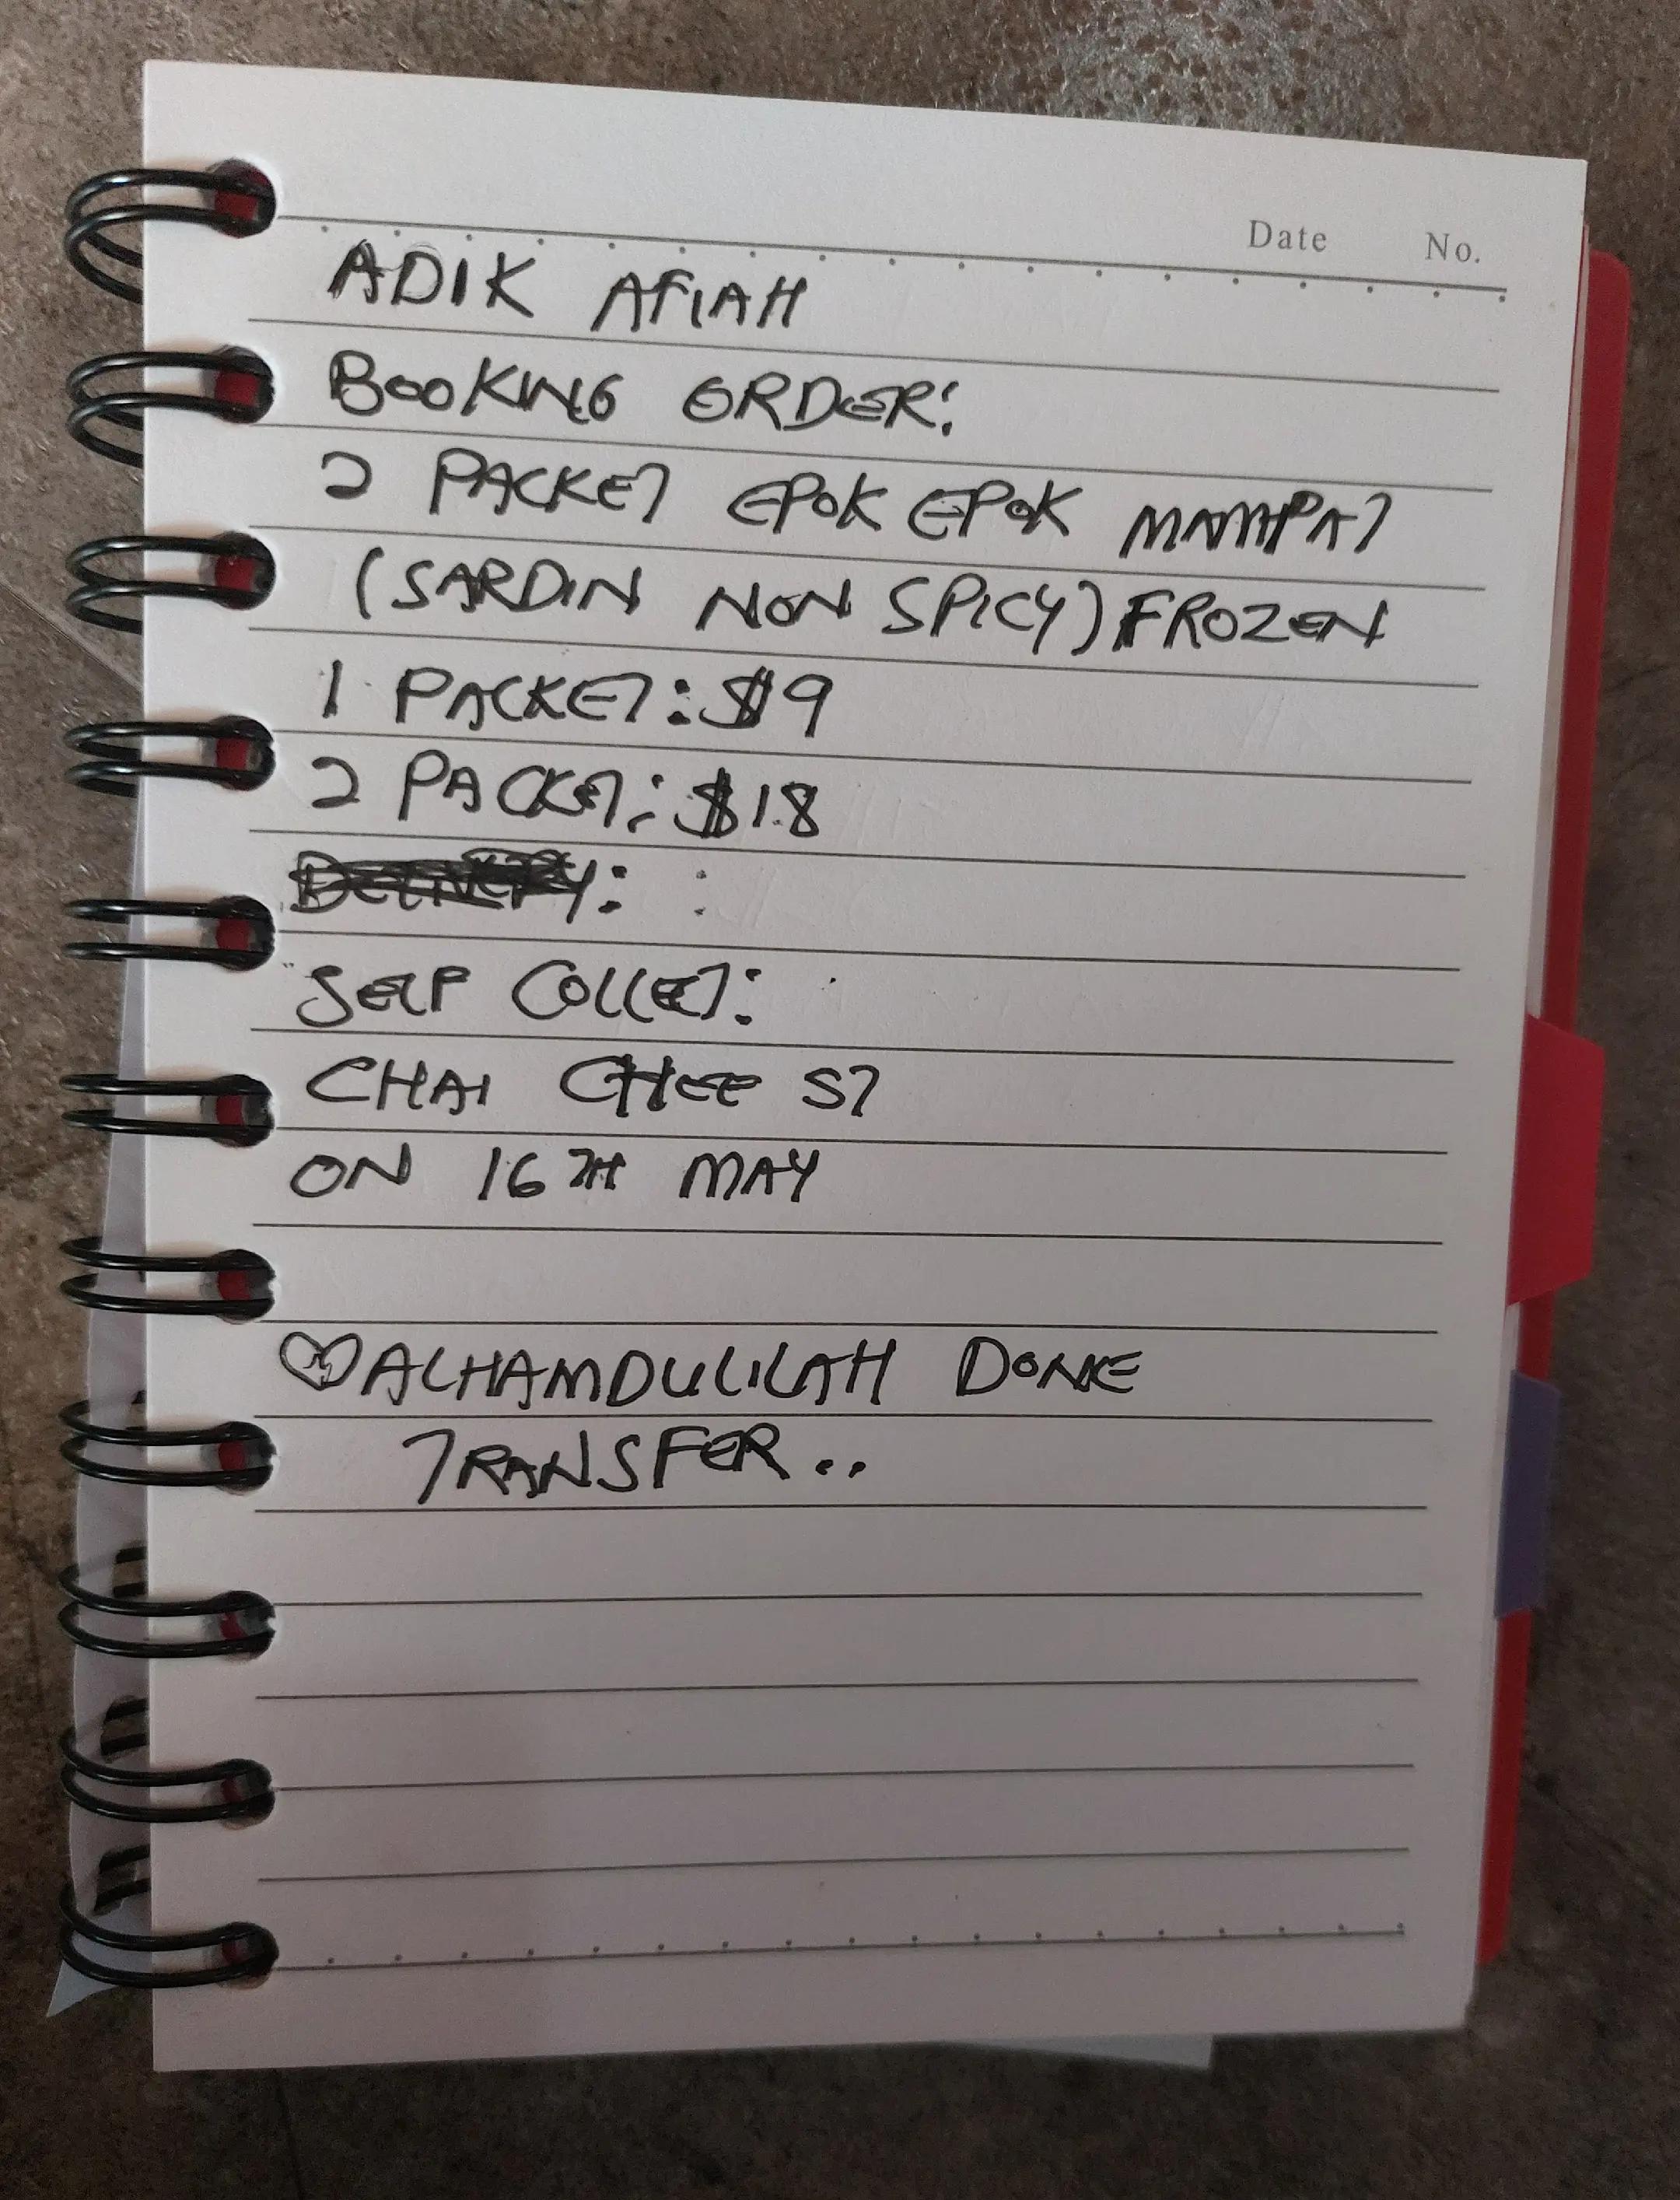 Date No.
ADIK AFIAH
BOOKING ORDER:
2 PACKET EPOK EPOK MAMPAT
(SARDIN NON SPICY) FROZEN
1 PACKET: $9
2 PACKET: $18
DELIVERY: :
SELF COLLET:
CHAI CHEE ST
ON 16TH MAY
♡ALHAMDULILAH DONE
TRANSFER..